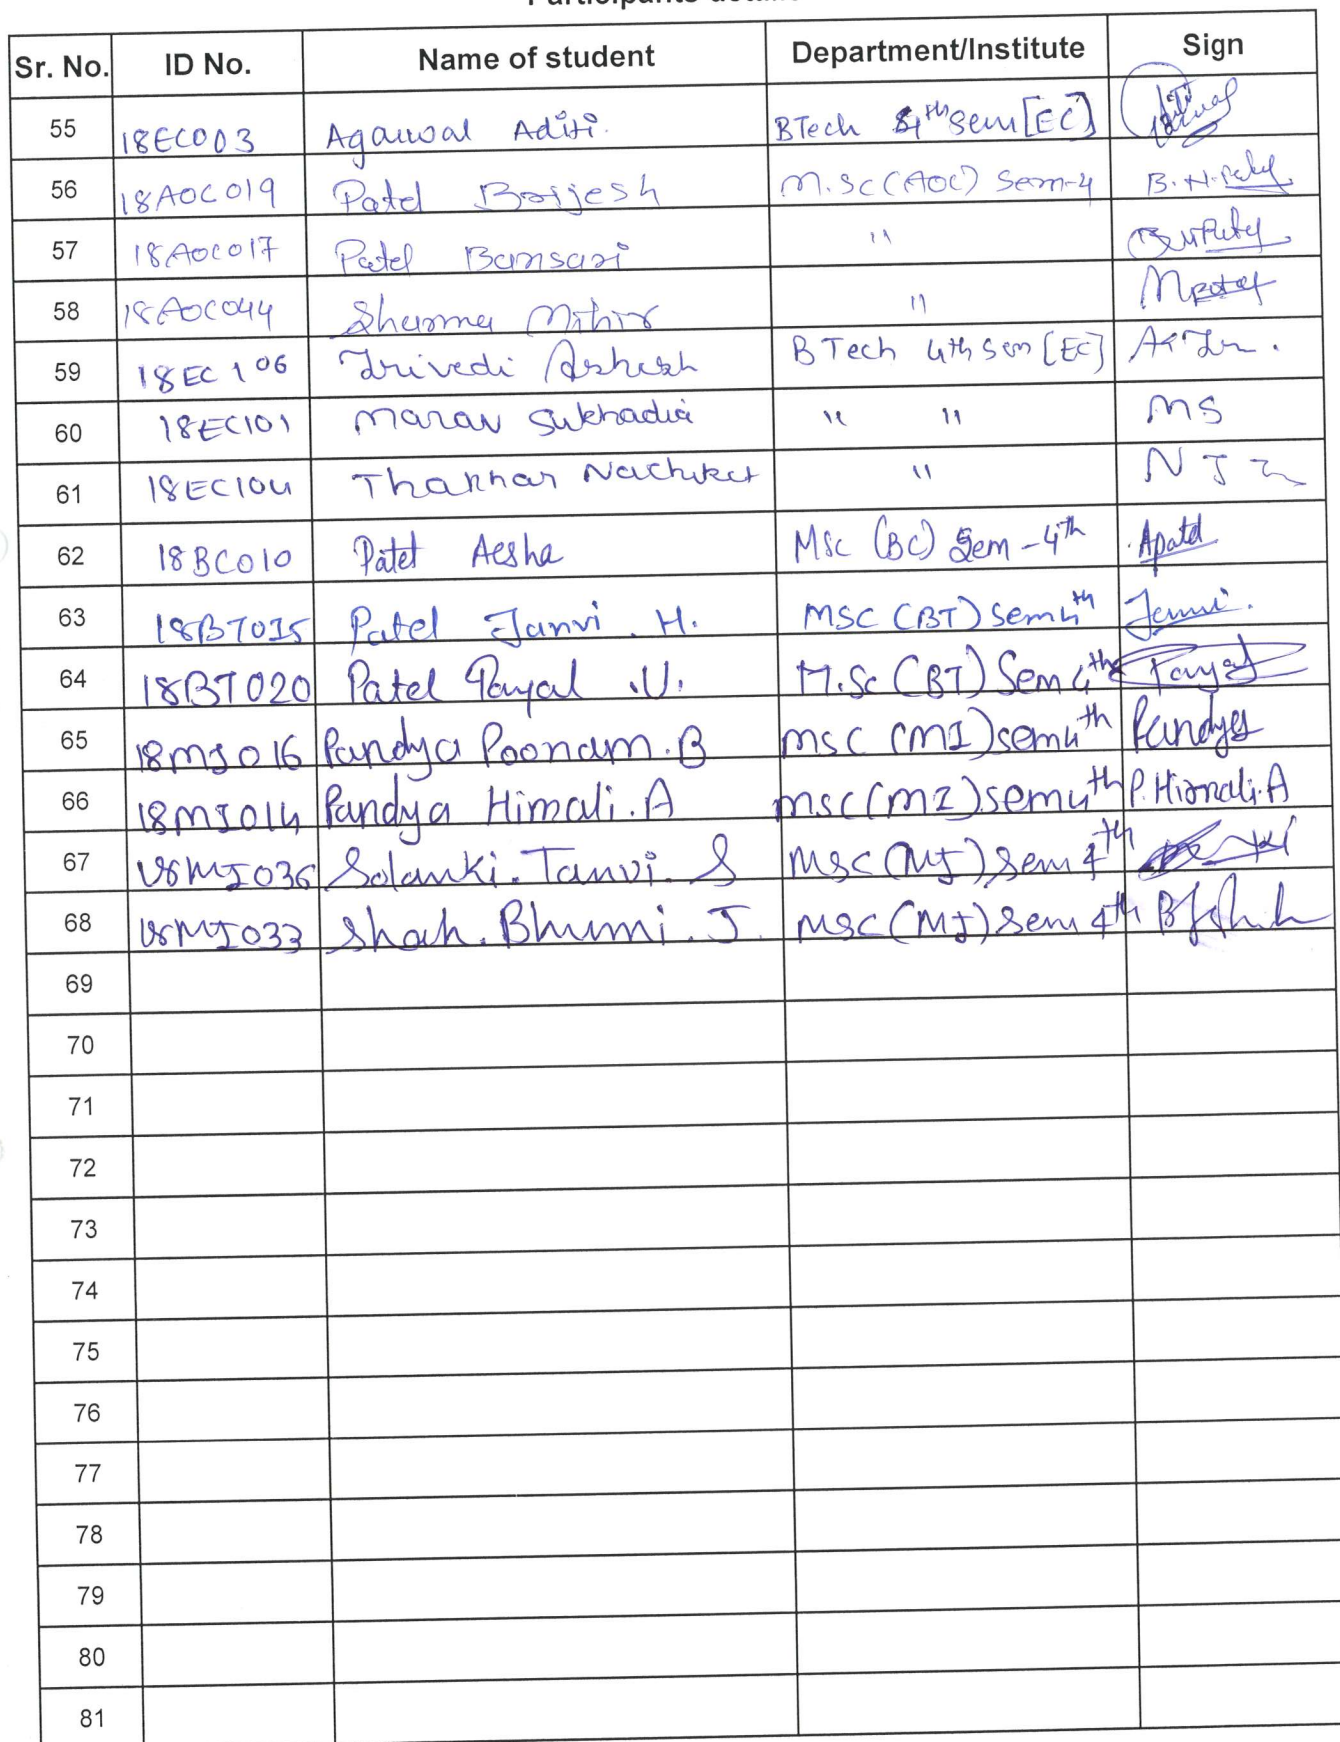 Sr. No. ID No. Name of student Department/Institute Sign
55 18EC003 Agarwal Aditi. BTech 4th sem [EC]
56 18AOC019 Patel Brijesh M.SC (AOC) Sem-4 B.N.Patel
57 18AOC017 Patel Bansari "
58 18AOC044 Sharma Mihir " Mpatel
59 18EC106 Trivedi Ashesh BTech 4th sem [EC]
60 18EC101 Marav Sukhadia " " MS
61 18EC104 Thakkar Nachiket " NJ
62 18BC010 Patel Aesha MSc (BC) Sem-4th Apatel
63 18BT015 Patel Janvi. H. MSC (BT) sem4th Janvi.
64 18BT020 Patel Payal .U. M.Sc (BT) Sem 4th Payal
65 18MI016 Pandya Poonam.B MSC (MI) sem4th Pandya
66 18MI014 Pandya Himali.A MSC (MI) sem4th P.Himali.A
67 18MI036 Solanki. Tanvi. S MSC (MI) Sem 4th
68 18MI033 Shah. Bhumi. J. MSC (MI) Sem 4th
69
70
71
72
73
74
75
76
77
78
79
80
81